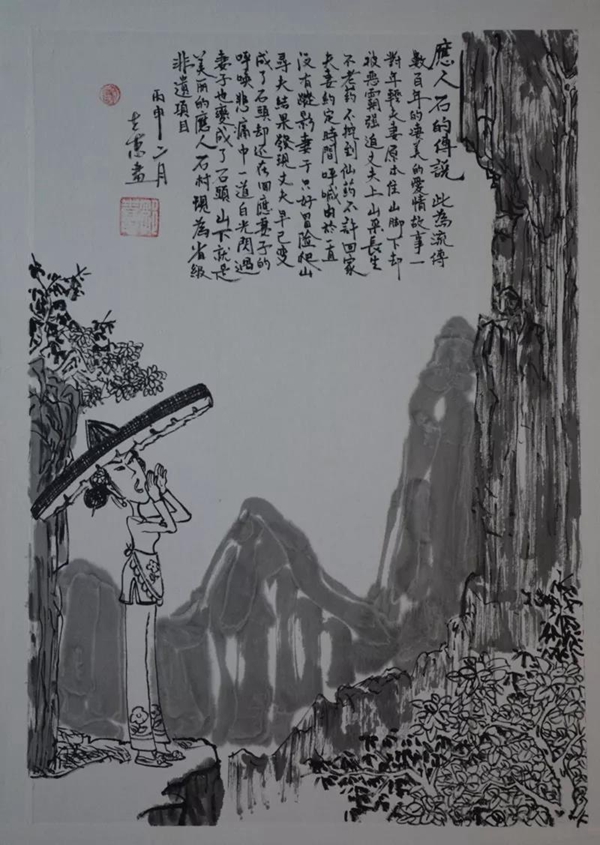 應人石的傳說 此為流傳
數百年的凄美的愛情故事一
對年輕夫妻原本住山脚下却
被惡霸强迫丈夫上山采長生
不老药不挖到仙药不許回家
夫妻約定時間呼喊由於一直
没有蹤影妻子只好冒险爬山
尋夫結果發現丈夫早已变
成了石頭却还在回應妻子的
呼唤悲痛中一道白光閃過
妻子也變成了石頭山下就是
美丽的應人石村現為省級
非遺項目
丙申二月
志惠畫